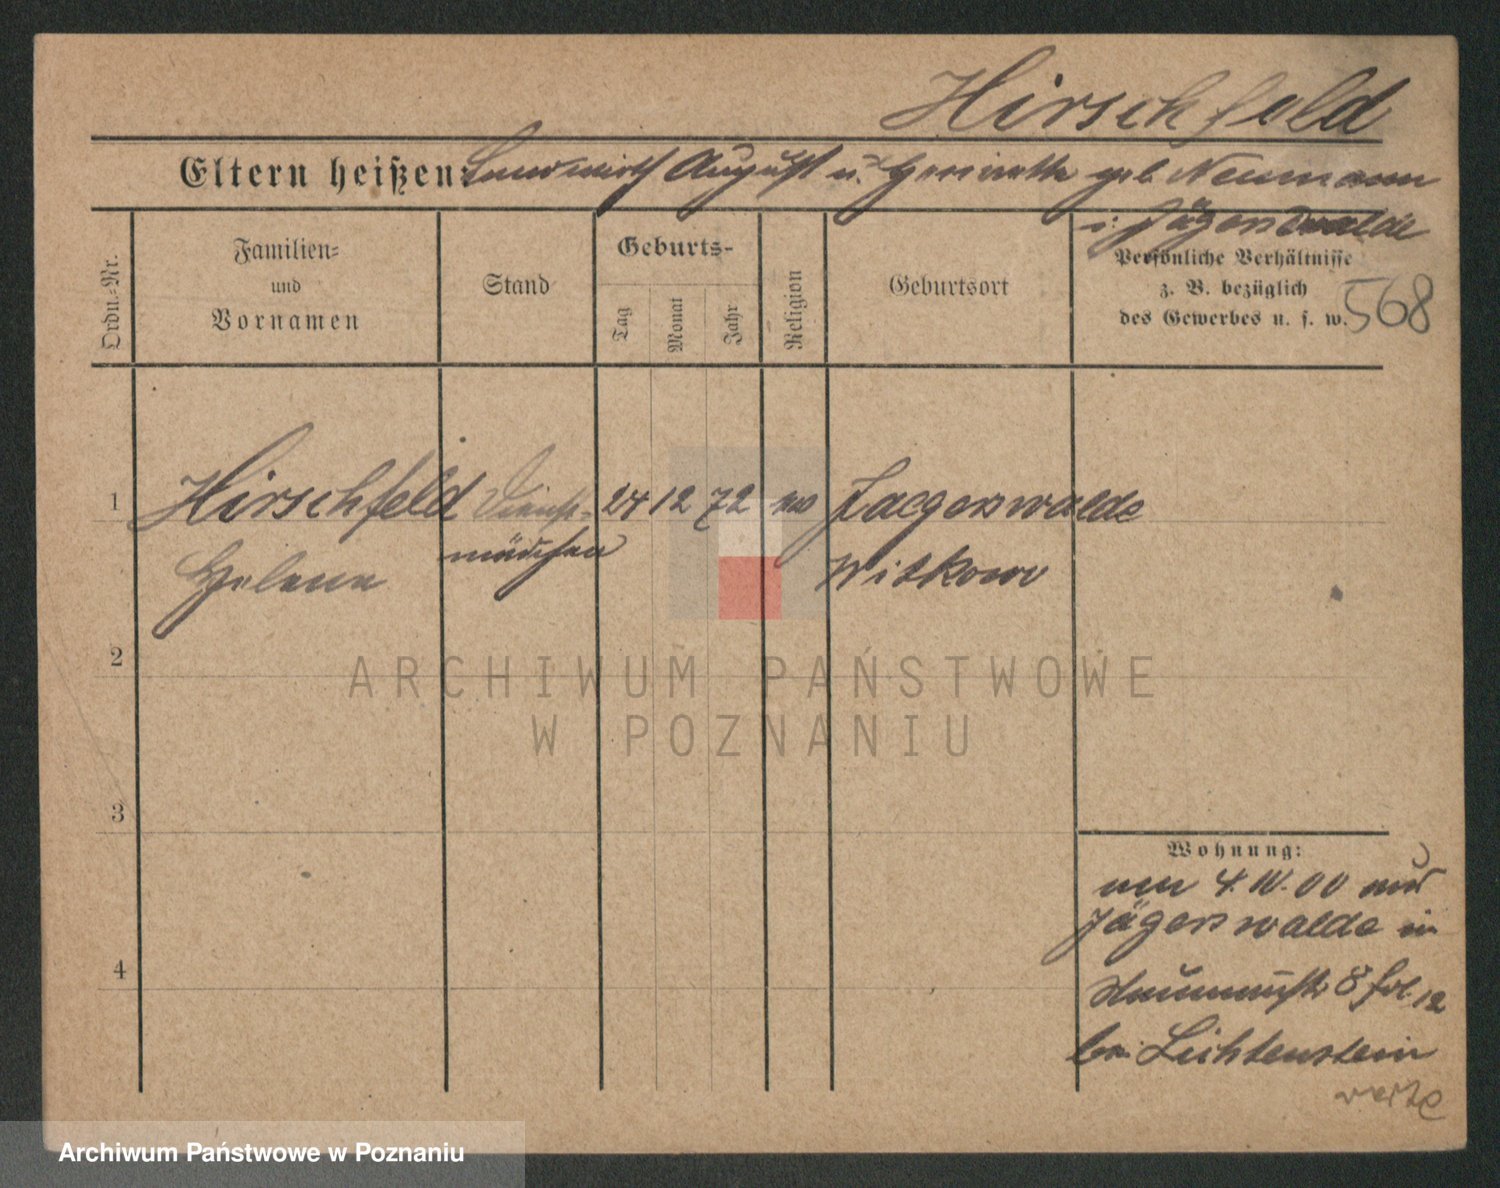 Hirschfeld
Eltern heißen: Landwirth August u. Henriette geb. Neumann
i. Jägerswalde
Ordn.-Nr.
Familien-
und
Vornamen
Stand
Geburts-
Tag
Monat
Jahr
Religion
Geburtsort
Persönliche Verhältnisse
z. B. bezüglich
des Gewerbes u. s. w.
568
1 Hirschfeld Dienst- 24 12 72 Jaegerswalde
Helene mädchen Witkowo
2
3
4
Wohnung:
4. IV. 00
Jägerswalde in
8 12
bei Lichtenstein
ARCHIWUM PAŃSTWOWE
W POZNANIU
Archiwum Państwowe w Poznaniu